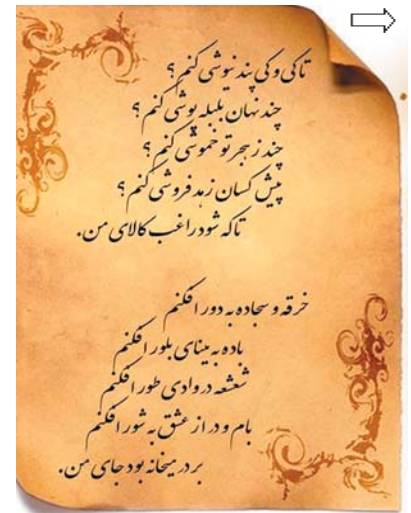 تا کی و کی پند نیوشی کنم ؟
چند نهان بلبله پوشی کنم ؟
چند ز هجر تو خموشی کنم ؟
پیش کسان زهد فروشی کنم ؟
تا که شود راغب کالای من.
خرقه و سجاده به دور افکنم
باده به مینای بلور افکنم
شعشعه در وادی طور افکنم
بام و در از عشق به شور افکنم
بر در میخانه بود جای من.